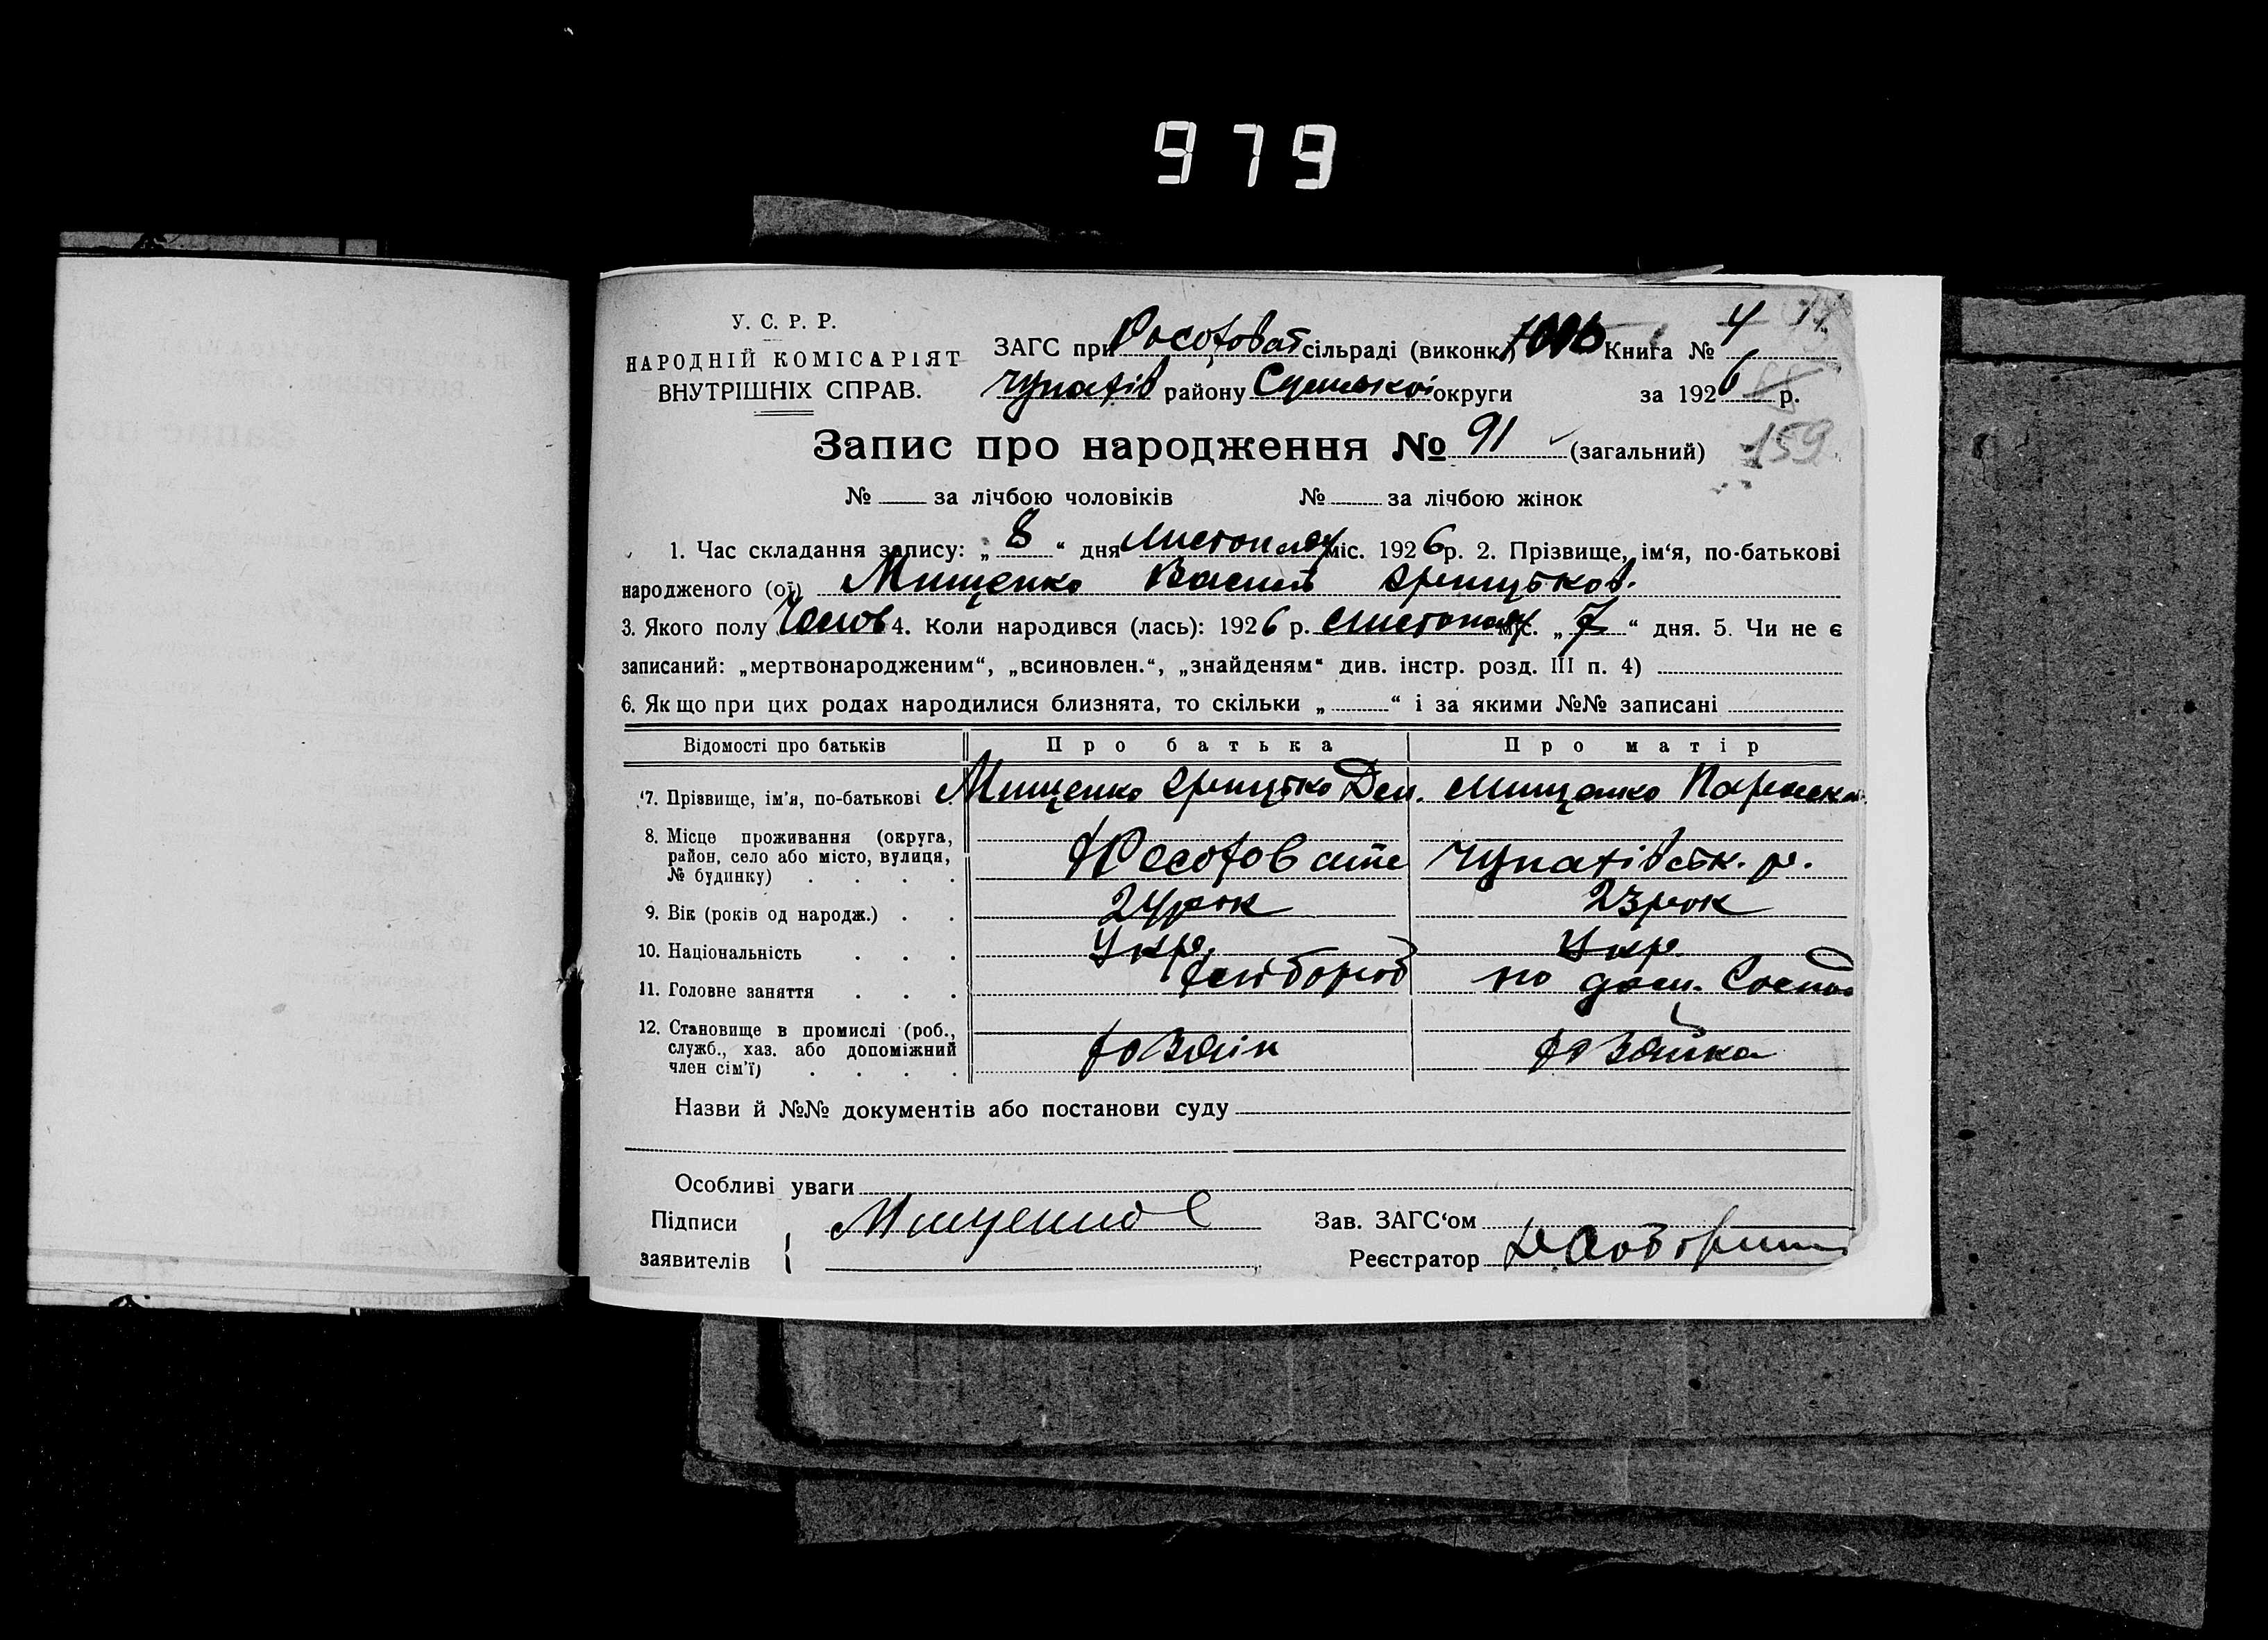 979
У. С. Р. Р.
НАРОДНІЙ КОМІСАРІЯТ
ВНУТРІШНІХ СПРАВ.
ЗАГС при Росоховат сільраді (виконк.) Книга № 4
Чупахів району Сумської округи за 1926 р.
159
Запис про народження № 91 (загальний)
№ за лічбою чоловіків № за лічбою жінок
1. Час складання запису: „ 8 “ дня листопаду міс. 1926 р. 2. Прізвище, ім‘я, по-батькові
народженого (ої) Мищенко Василь Грицьков.
3. Якого полу Чолов 4. Коли народився (лась): 1926 р. листопаду міс. „ 7 “ дня. 5. Чи не є
записаний: „мертвонародженим“, „всиновлен.“, „знайденям“ див. інстр. розд. III п. 4)
6. Якщо при цих родах народилися близнята, то скільки „ “ і за якими №№ записані
Відомості про батьків Про батька Про матір
7. Прізвище, ім'я, по-батькові Мищенко Грицько Дем. Мищенко Параска
8. Місце проживання (округа,
район, село або місто, вулиця,
№ будинку) . . . . Росоховате Чупахівськ. р.
9. Вік (років од народж.) . . 24 рок 23 рок
10. Національність . . . Укр. Укр.
11. Головне заняття . . . хлібороб по дом. Господ
12. Становище в промислі (роб.,
служб., хаз. або допоміжний
член сім'ї) . . . . хозяїн хозяйка
Назви й №№ документів або постанови суду
Особливі уваги
Підписи Мищенко Зав. ЗАГС‘ом
заявителів Реєстратор